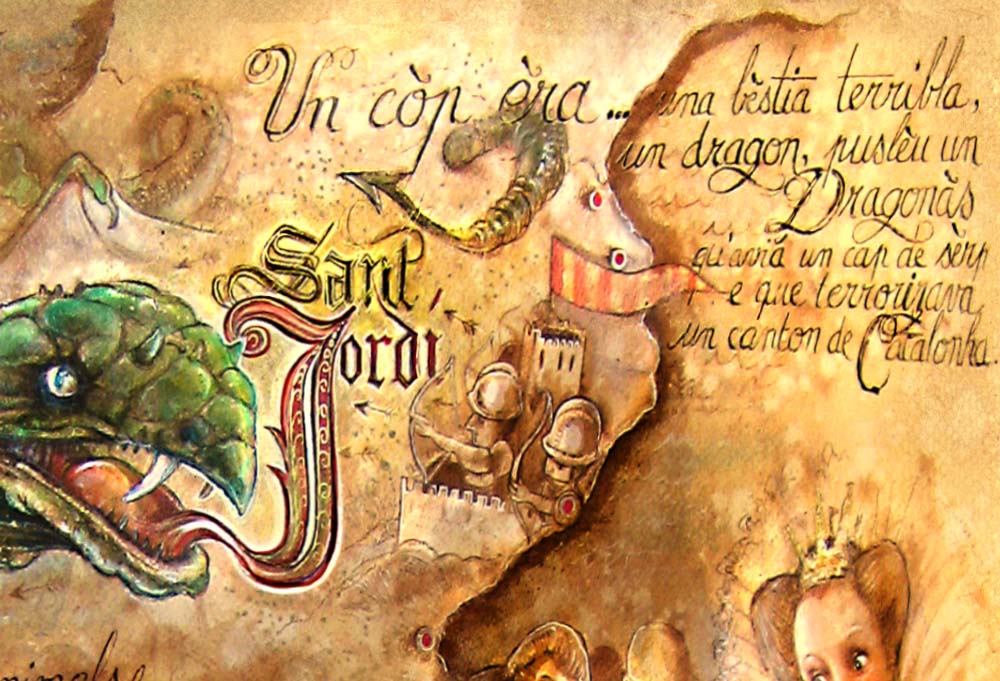 Un còp èra... una bèstia terribla,
un dragon, puslèu un
Dragonàs
qu'aviá un cap de sèrp
e que terrorizava
un canton de Catalonha.
Sant
Jordi